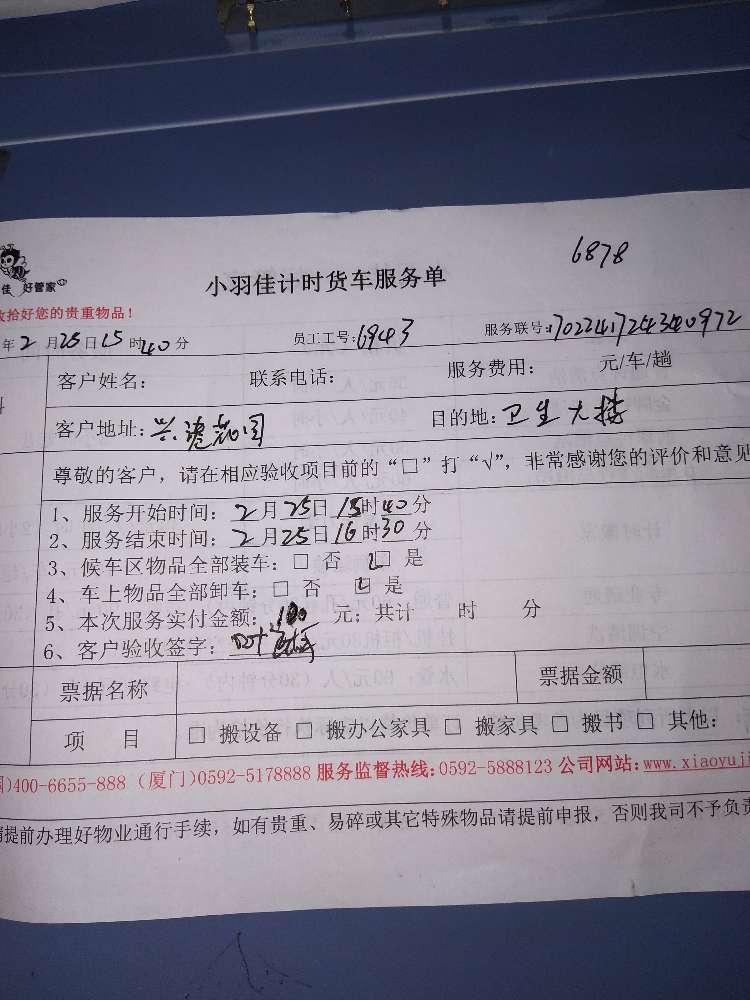 6878
佳 好管家
小羽佳计时货车服务单
收拾好您的贵重物品！
年2月25日15时40分 员工工号：6943 服务联号：1702241725434
客户姓名： 联系电话： 服务费用： 元/车/趟
客户地址：兴港花园 目的地：卫生大楼
尊敬的客户，请在相应验收项目前的“□”打“√”，非常感谢您的评价和意见
1、服务开始时间：2月25日15时40分
2、服务结束时间：2月25日16时30分
3、候车区物品全部装车：□ 否 □ 是
4、车上物品全部卸车：□ 否 □ 是
5、本次服务实付金额： 元；共计 时 分
6、客户验收签字：
票据名称 票据金额
项 目 □ 搬设备 □ 搬办公家具 □ 搬家具 □ 搬书 □ 其他：
)400-6655-888 (厦门)0592-5178888 服务监督热线：0592-5888123 公司网站：www.xiaoyuji
提前办理好物业通行手续，如有贵重、易碎或其它特殊物品请提前申报，否则我司不予负责